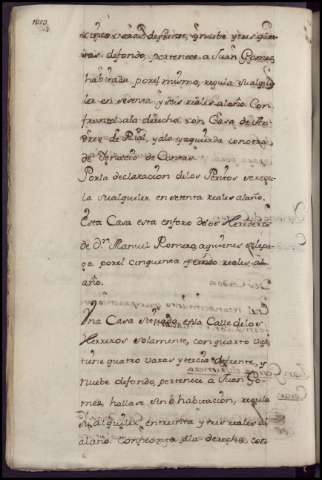 y cinco varas de frente, y nuebe y tres quar
tas de fondo, pertenece a Juan Gomez,
habitada por el mismo, regula su alqui
ler en sesenta y seis reales al año. Con
fronta a la derecha con Casa de An
dres de Rial, y a la yzquierda con otra
de Ignacio de Comas.
Por la declaracion de los Peritos se regu
la su alquiler en setenta reales al año,
Esta Casa esta en foro de los Herederos
de Dn. Manuel Romero, a quienes se le pa
ga por el cinquenta reales al
año.
Una Casa en la Calle de los
Herreros solamente, con quarto vajo,
tiene quatro varas y tercia de frente, y
nuebe de fondo, pertenece a Juan Go
mez, hallase sin habitacion, regula
su alquiler en treinta y seis reales al
al año. Confronta a la derecha con